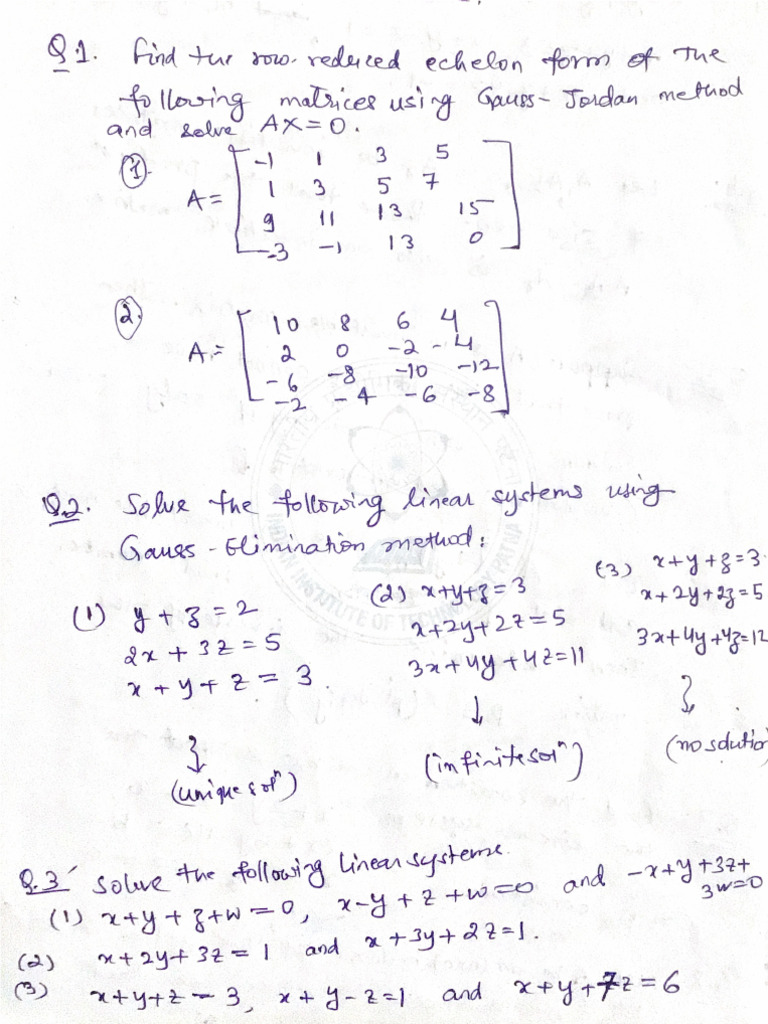 Q1. Find the row-reduced echelon form of the
following matrices using Gauss-Jordan method
and solve AX=0.
(1).
A= [ -1 1 3 5
1 3 5 7
9 11 13 15
-3 -1 13 0 ]
(2).
A= [ 10 8 6 4
2 0 -2 -4
-6 -8 -10 -12
-2 -4 -6 -8 ]
Q.2. Solve the following linear systems using
Gauss-Elimination method:
(1) y+z=2
2x+3z=5
x+y+z=3.
(unique solⁿ)
(2) x+y+z=3
x+2y+2z=5
3x+4y+4z=11
(infinite solⁿ)
(3) x+y+z=3.
x+2y+2z=5
3x+4y+4z=12
(no solutio
Q.3 Solve the following linear systems.
(1) x+y+z+w=0, x-y+z+w=0 and -x+y+3z+
3w=0
(2) x+2y+3z=1 and x+3y+2z=1.
(3) x+y+z=3, x+y-z=1 and x+y+7z=6
INDIAN INSTITUTE OF TECHNOLOGY PATNA